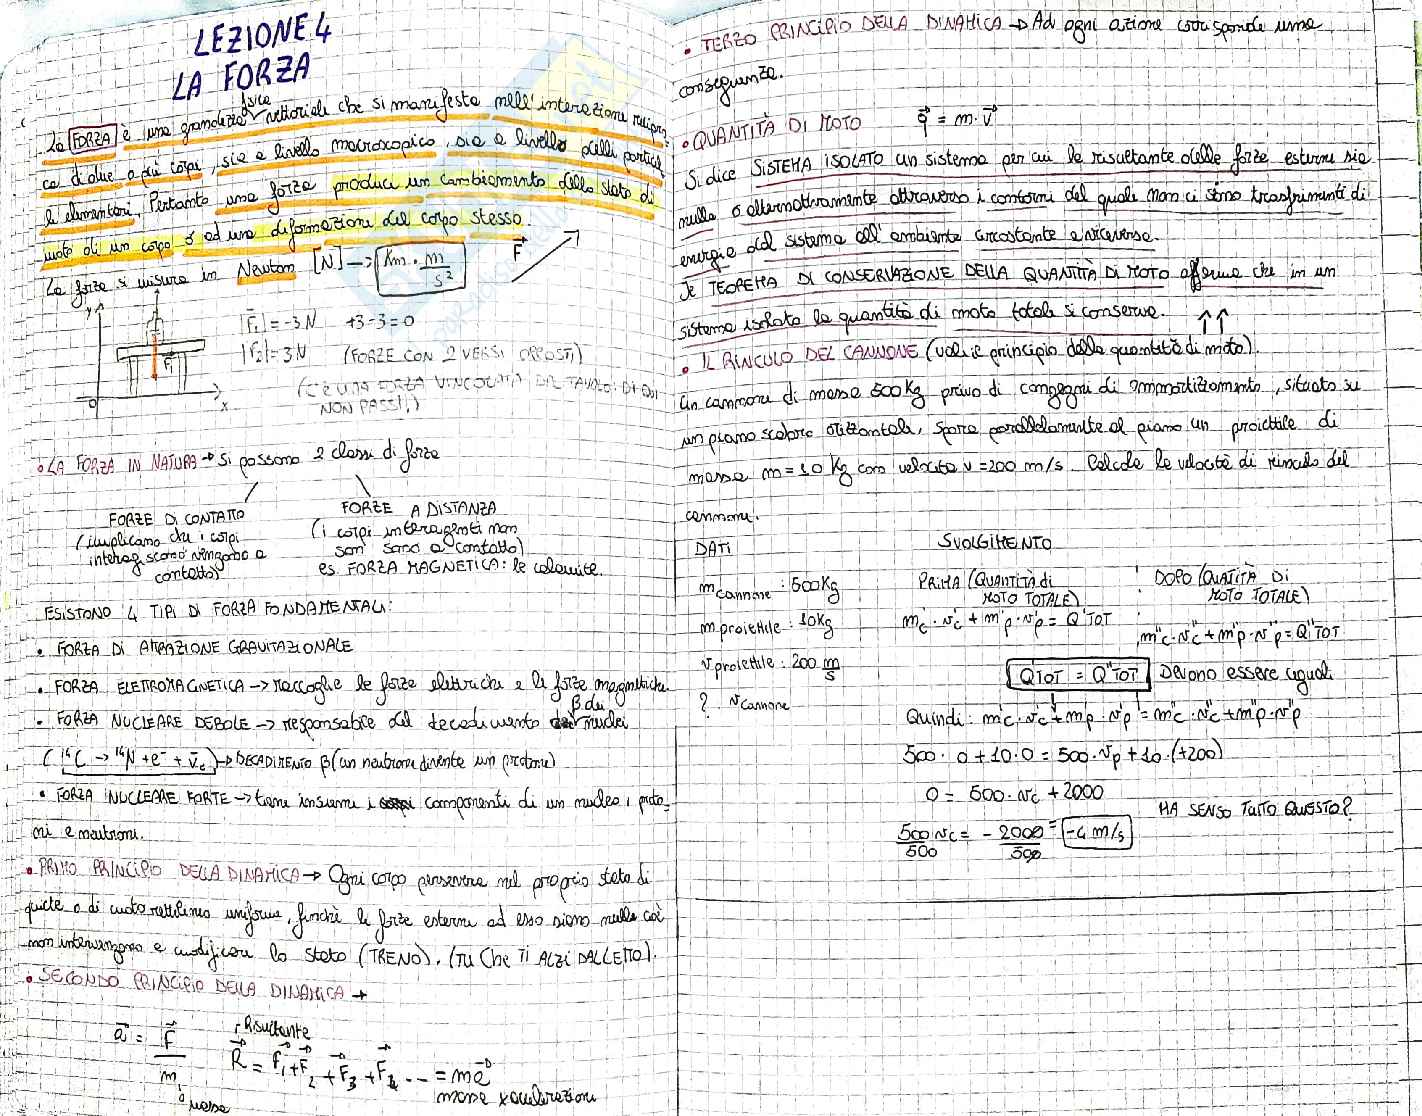 LEZIONE 4
LA FORZA
La FORZA è una grandezza fisica vettoriale che si manifesta nell'interazione recipro-
ca di due o più corpi, sia a livello macroscopico, sia a livello delle particel
le elementari. Pertanto una forza produce un cambiamento dello stato di
moto di un corpo o ad una deformazione del corpo stesso.
La forza si misura in Newton [N] → Km · m/s² F
y |F₁| = -3N +3-3=0
|F₂| = 3N (FORZE CON 2 VERSI OPPOSTI)
(C'È UNA FORZA VINCOLATA DAL TAVOLO: DI QUI
NON PASSI!)
F₁
0 x
• LA FORZA IN NATURA → Si possono 2 classi di forze
FORZE DI CONTATTO
(implicano che i corpi
interagiscono vengano a
contatto)
FORZE A DISTANZA
(i corpi interagenti non
son sono a contatto)
es. FORZA MAGNETICA: le calamite.
ESISTONO 4 TIPI DI FORZA FONDAMENTALI:
• FORZA DI ATTRAZIONE GRAVITAZIONALE
• FORZA ELETTROMAGNETICA → raccoglie le forze elettriche e le forze magnetiche
• FORZA NUCLEARE DEBOLE → responsabile del decadimento β dei nuclei
(¹⁴C → ¹⁴N + e⁻ + v̄e) → DECADIMENTO β (un neutrone diventa un protone)
• FORZA NUCLEARE FORTE → tiene insieme i componenti di un nucleo, proto-
ni e neutroni.
• PRIMO PRINCIPIO DELLA DINAMICA → Ogni corpo persevera nel proprio stato di
quiete o di moto rettilineo uniforme, finché le forze esterne ad esso siano nulle cioè
non intervengono a modificare lo stato (TRENO). (TU CHE TI ALZI DAL LETTO).
• SECONDO PRINCIPIO DELLA DINAMICA →
a = F/m massa
Risultante
R = F₁ + F₂ + F₃ + F₄ ... = ma
massa x accelerazione
• TERZO PRINCIPIO DELLA DINAMICA → Ad ogni azione corrisponde una
conseguenza.
• QUANTITÀ DI MOTO q = m · v
Si dice SISTEMA ISOLATO un sistema per cui la risultante delle forze esterne sia
nulla o alternativamente attraverso i contorni del quale non ci sono trasferimenti di
energia dal sistema all'ambiente circostante e viceversa.
Il TEOREMA DI CONSERVAZIONE DELLA QUANTITÀ DI MOTO afferma che in un
sistema isolato la quantità di moto totale si conserva.
• IL RINCULO DEL CANNONE (vale il principio della quantità di moto).
Un cannone di massa 500 Kg privo di congegni di ammortizzamento, situato su
un piano scabro orizzontale, spara parallelamente al piano un proiettile di
massa m = 10 Kg con velocità v = 200 m/s. Calcola la velocità di rinculo del
cannone.
DATI
m cannone : 500Kg
m proiettile : 10Kg
v proiettile : 200 m/s
? v cannone
SVOLGIMENTO
PRIMA (QUANTITÀ di
MOTO TOTALE)
m'c · v'c + m'p · v'p = Q'TOT
DOPO (QUATITÀ DI
MOTO TOTALE)
m"c · v"c + m"p · v"p = Q"TOT
Q'TOT = Q"TOT Devono essere uguali
Quindi: m'c · v'c + m'p · v'p = m"c · v"c + m"p · v"p
500 · 0 + 10 · 0 = 500 · vp + 10 · (+200)
0 = 500 · vc + 2000
500 vc/500 = -2000/500 = -4 m/s
HA SENSO TUTTO QUESTO?